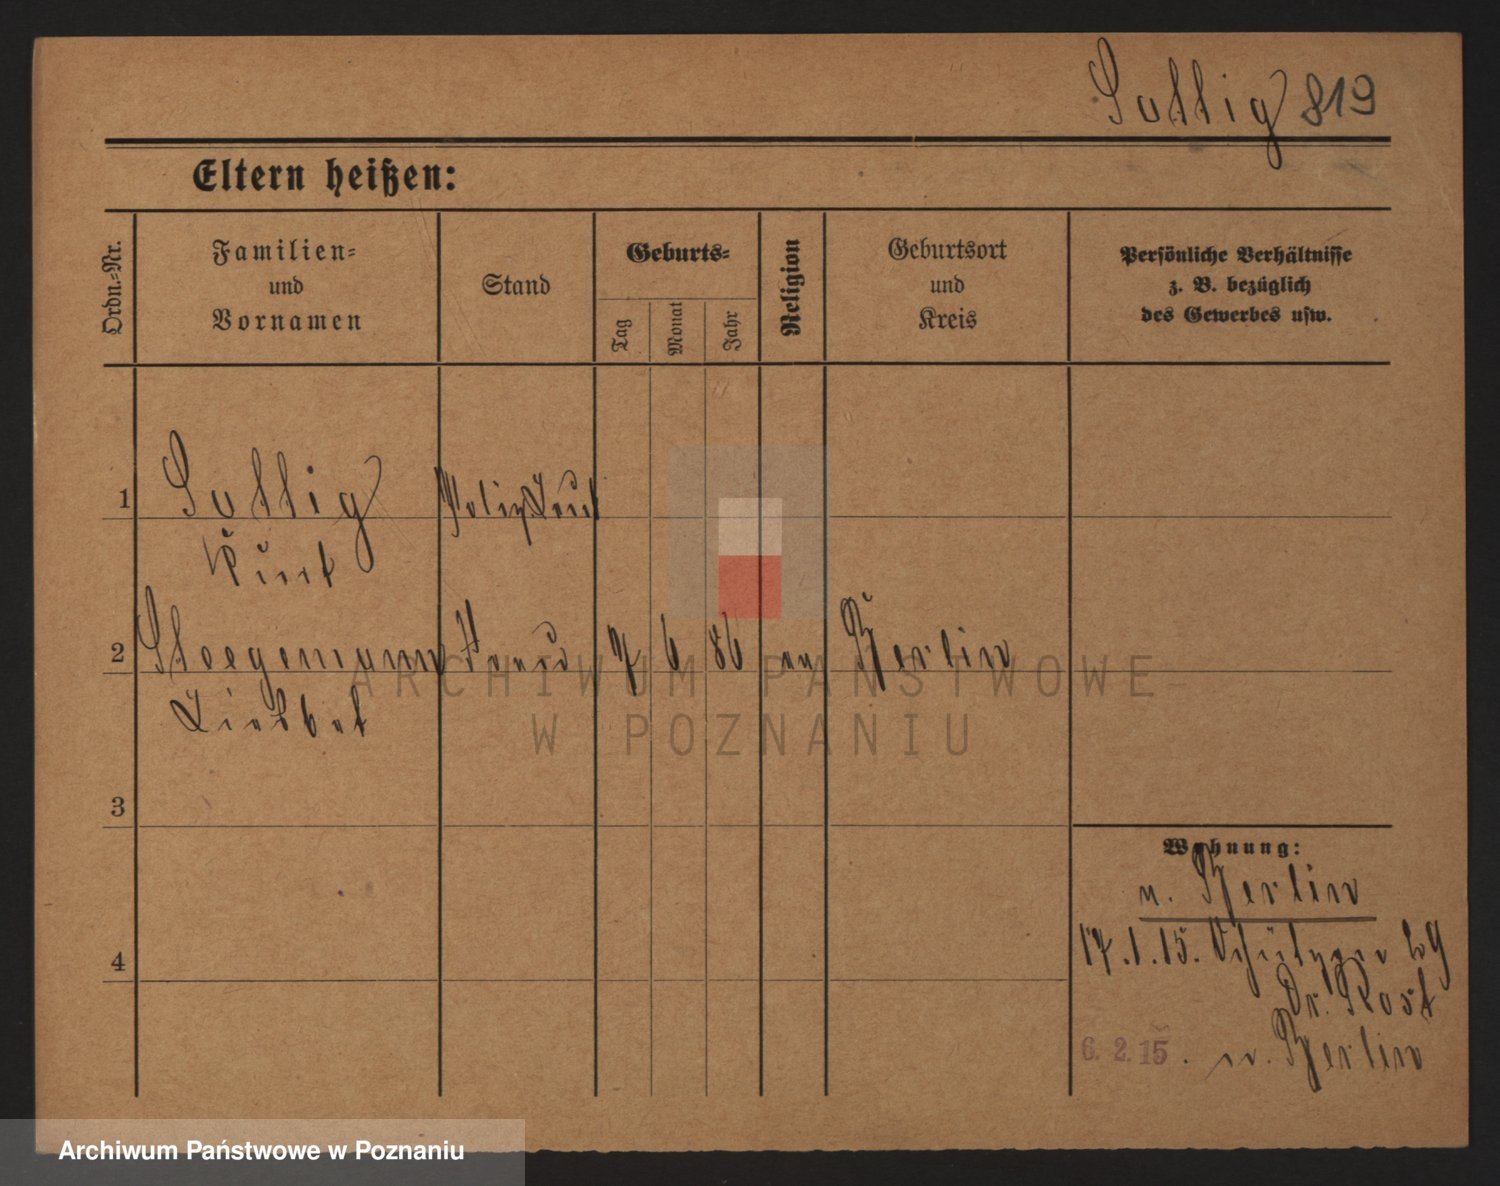 Sattig 819
Eltern heißen:
Ordn.=Nr.
Familien=
und
Vornamen
Stand
Geburts=
Tag
Monat
Jahr
Religion
Geburtsort
und
Kreis
Persönliche Verhältnisse
z. B. bezüglich
des Gewerbes usw.
1 Sattig
Kurt
2 Stoegemann Frau 7 6 86 ev Berlin
Liesbet
3
4
Wohnung:
n. Berlin
17.1.15. 29
Dr. Rost
6. 2. 15. n. Berlin
ARCHIWUM PAŃSTWOWE
W POZNANIU
Archiwum Państwowe w Poznaniu